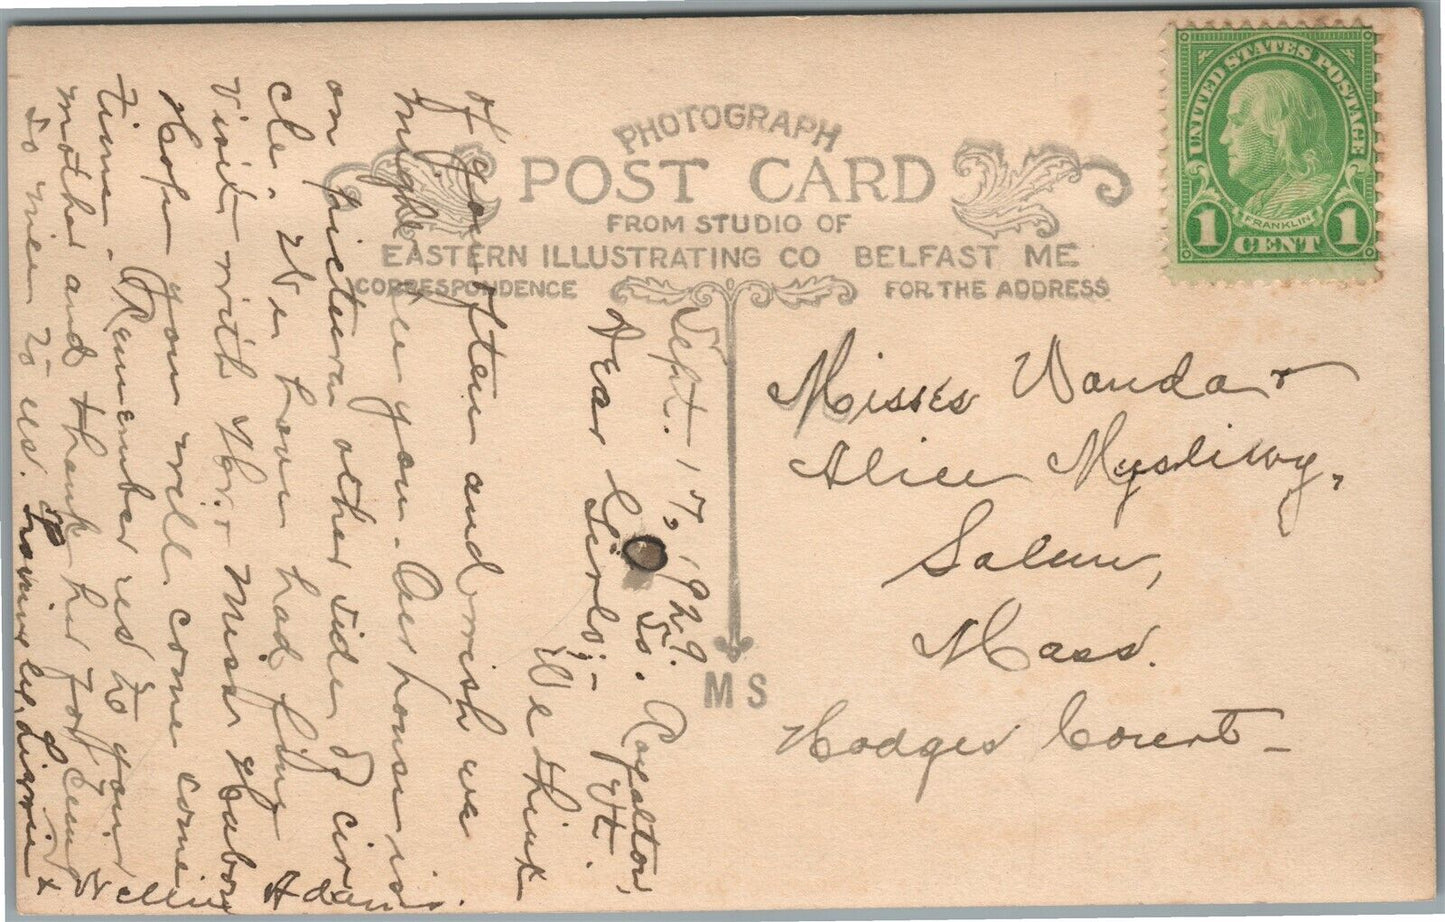 PHOTOGRAPH
POST CARD
FROM STUDIO OF
EASTERN ILLUSTRATING CO BELFAST ME
CORRESPONDENCE
FOR THE ADDRESS
UNITED STATES POSTAGE
FRANKLIN
1 CENT 1
M S
Misses Wanda +
Alice Mysliwy,
Salem,
Mass.
Hodges Court-
Sept. 17, 1929
So. Royalton,
Vt.
Dear Girls;-
We think
of you often and wish we
might see you. Our house is
on picture other side of cir
cle. We have had fine
visit with Mr. + Miss
Hope you will come come
time. Remember us to your
mother and thank her for
so nice to us. Lovingly, Lizzie
+ Nellie Adams.